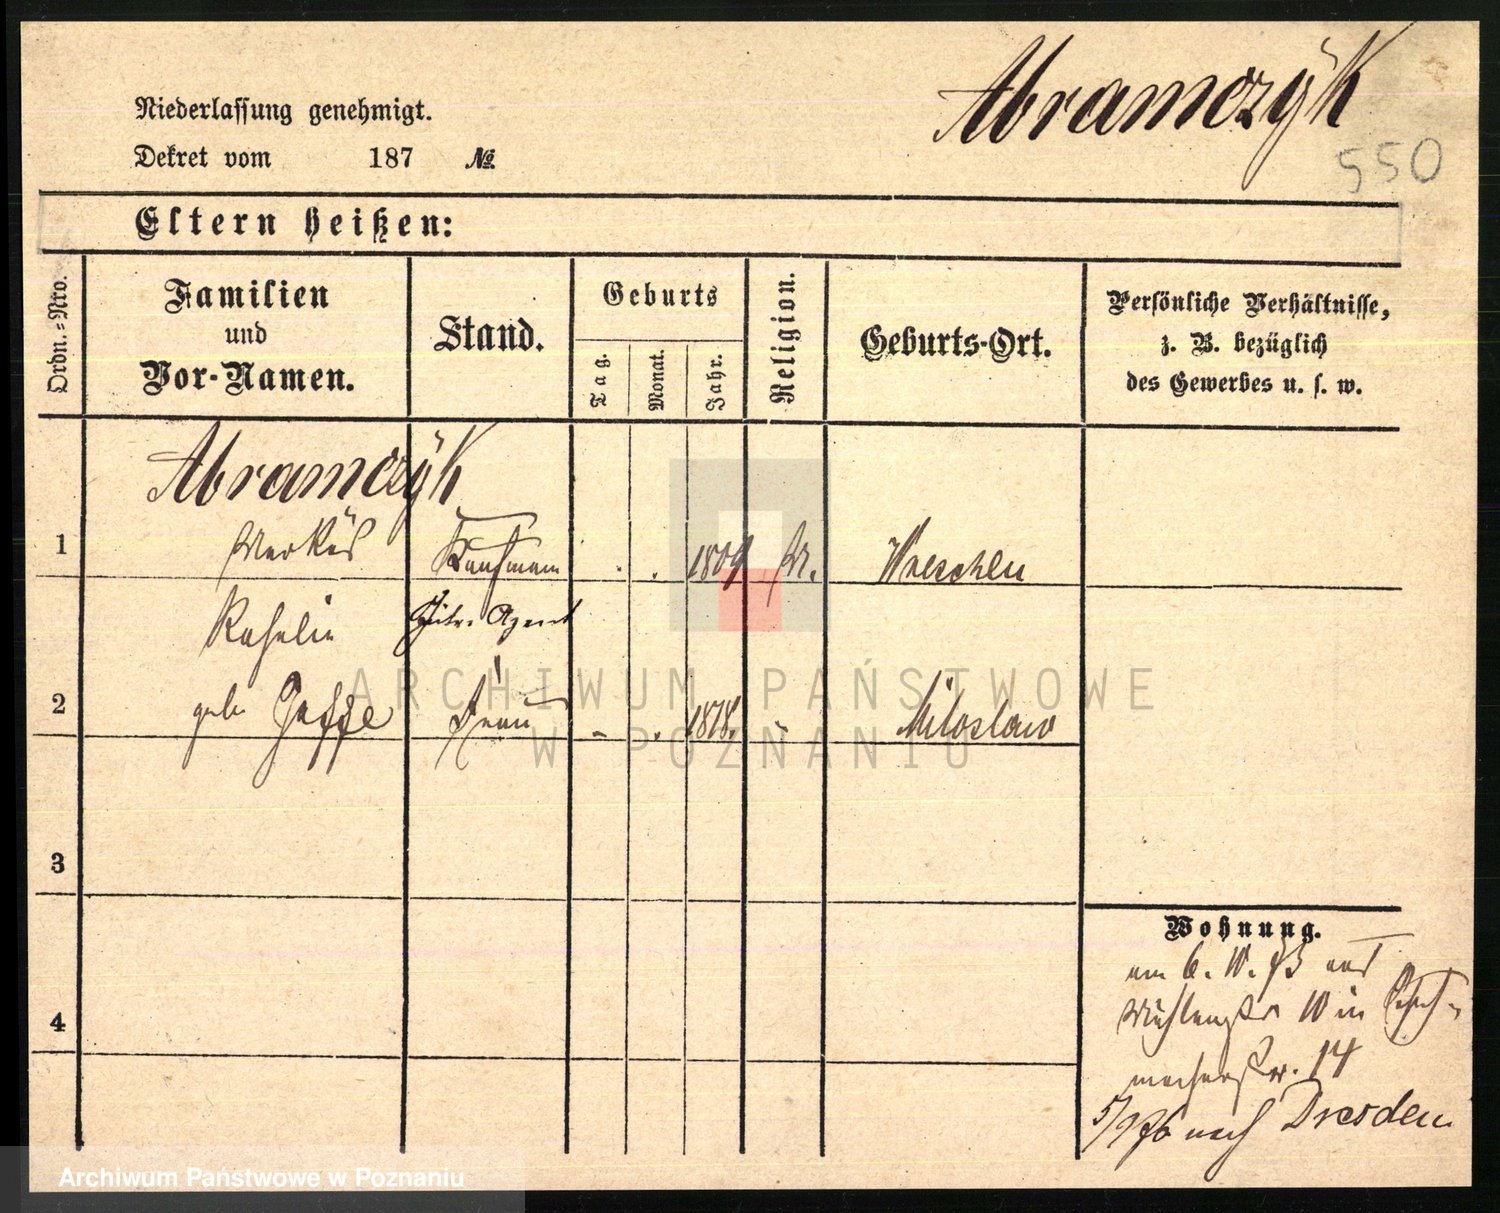 Abramczyk
550
Niederlassung genehmigt.
Dekret vom 187 №
Eltern heißen:
Ordn.=Nro.
Familien
und
Vor-Namen.
Stand.
Geburts
Tag.
Monat.
Jahr.
Religion.
Geburts-Ort.
Persönliche Verhältnisse,
z. B. bezüglich
des Gewerbes u. s. w.
Abramczyk
1 Markus Kaufmann 1809 M. Wreschen
Güter Agent
2 geb Jaffe Frau 1818. " Miloslaw
3
4
Wohnung.
am 6. 10. 73 aus
Mühlenstr 10 in Schuh-
macherstr. 14
5/9 76 nach Dresden
ARCHIWUM PAŃSTWOWE
W POZNANIU
Archiwum Państwowe w Poznaniu